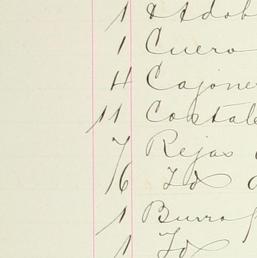 1
1 Cuero
4 Cajone
11 Costale
7 Rejas
16 Id
1 Burro
1 Id